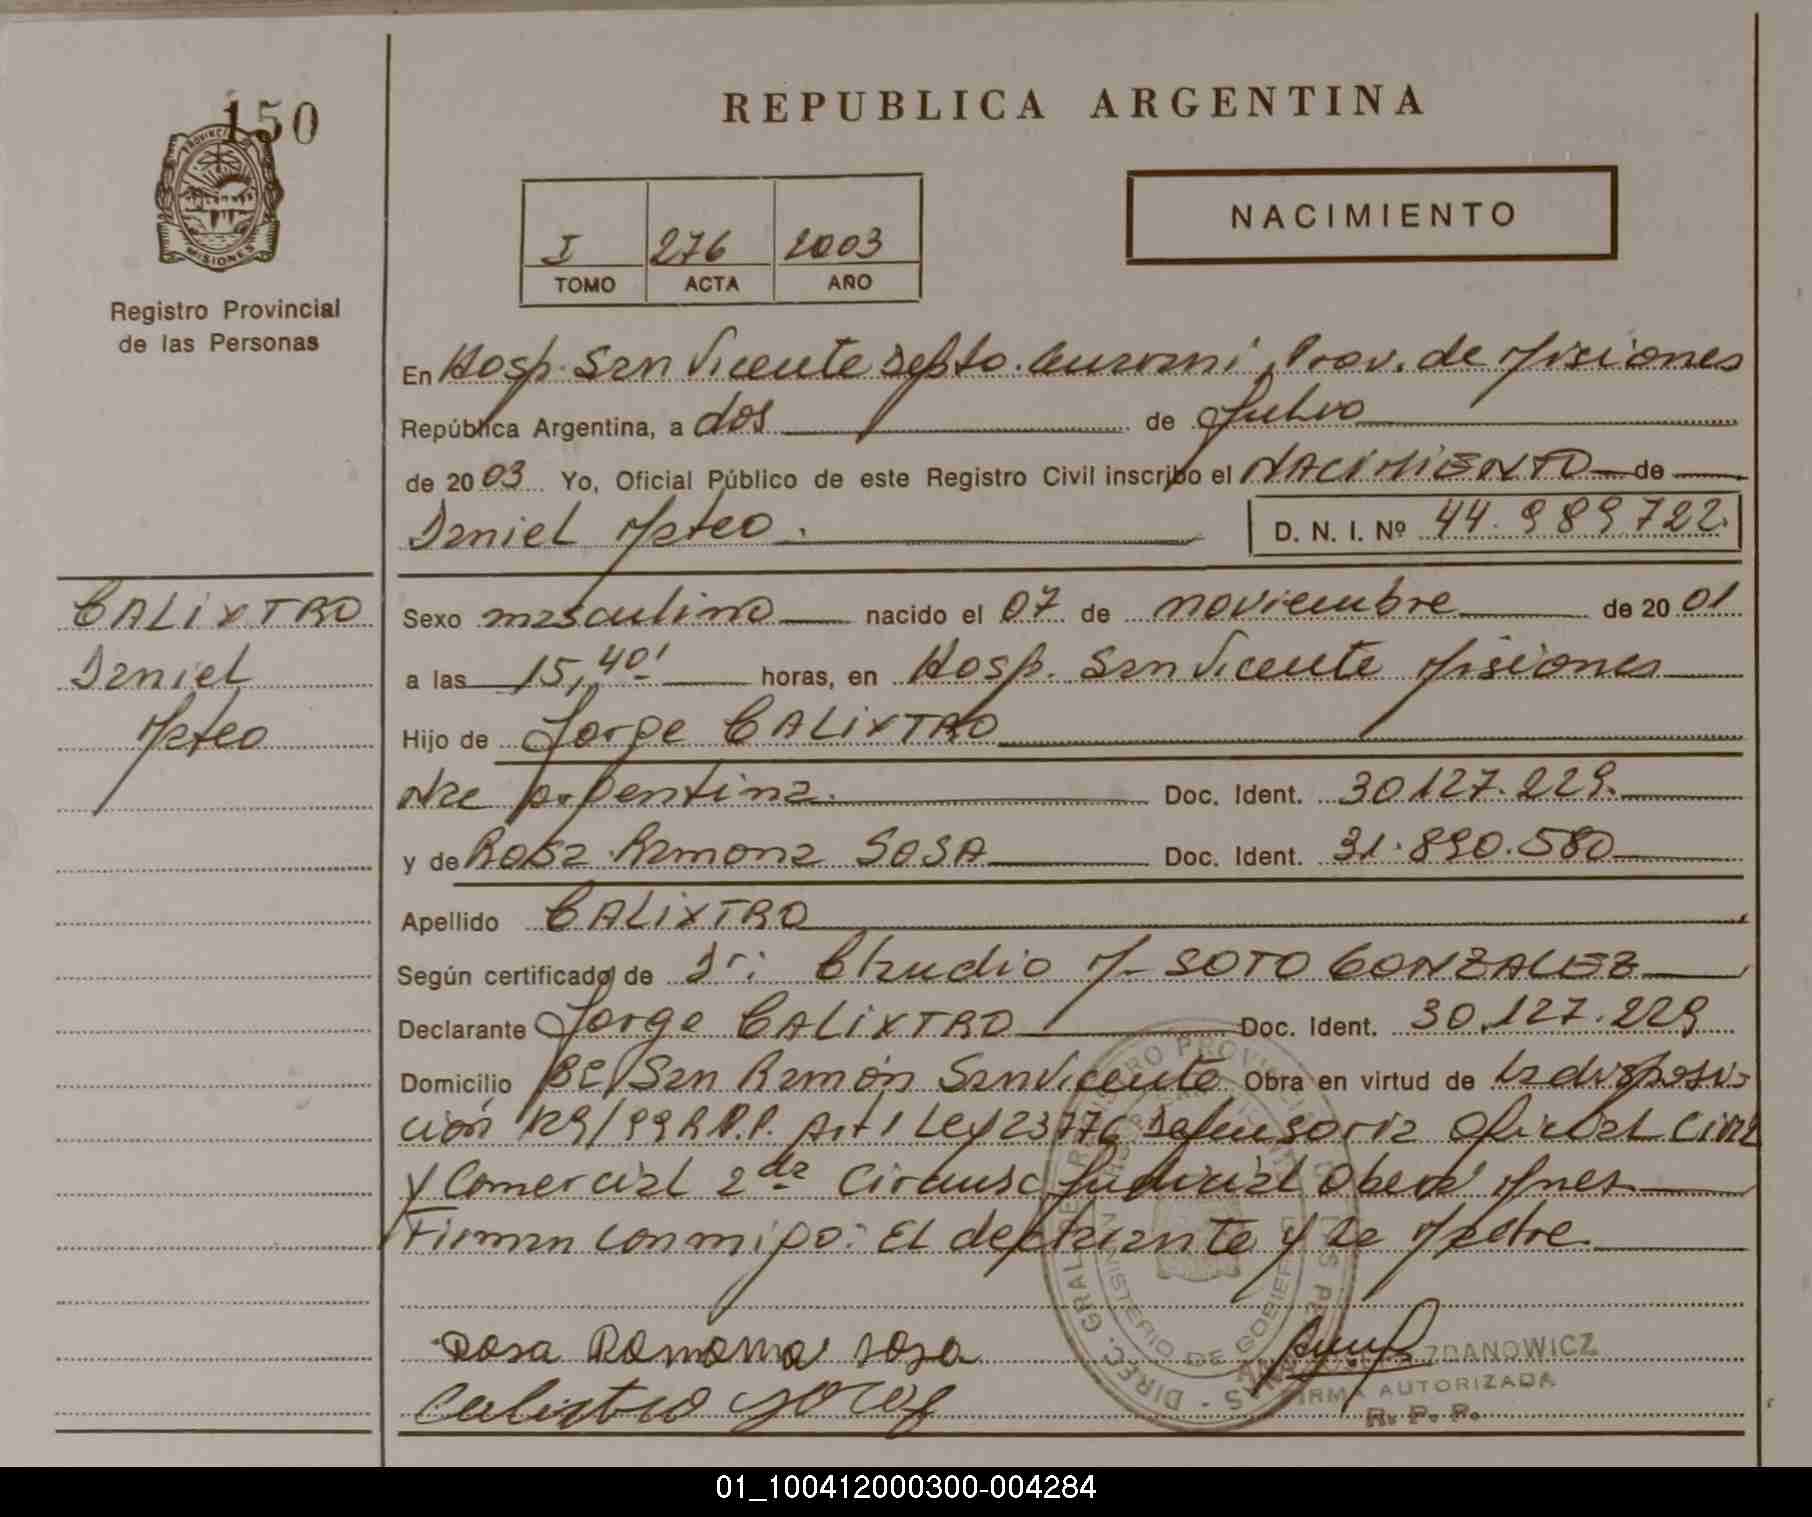 150
PROVINCIA DE
MISIONES
Registro Provincial
de las Personas
REPUBLICA ARGENTINA
I 276 2003
TOMO ACTA AÑO
NACIMIENTO
En Hosp. San Vicente Depto. Guarani, Prov. de Misiones
República Argentina, a dos de Julio
de 2003 Yo, Oficial Público de este Registro Civil inscribo el NACIMIENTO de
Daniel Mateo. D. N. I. Nº 44.989722.
CALIXTRO
Daniel
Mateo
Sexo masculino nacido el 07 de noviembre de 2001
a las 15,40' horas, en Hosp. San Vicente Misiones
Hijo de Jorge CALIXTRO
Nac Argentina. Doc. Ident. 30.127.229.
y de Rosa Ramona SOSA Doc. Ident. 31.890.580
Apellido CALIXTRO
Según certificado de Dr: Claudio M. SOTO GONZALEZ
Declarante Jorge CALIXTRO Doc. Ident. 30.127.229
Domicilio Bº San Ramón San Vicente Obra en virtud de la disposi-
ción 129/99 R.P.P. Art 1 Ley 23776 Defensoria Oficial Civil
y Comercial 2da Circunsc Judicial Oberá Mnes
Firman conmigo: El declarante y la Madre.
Rosa Ramona sosa
Calixtro Jorge
ZDANOWICZ
FIRMA AUTORIZADA
R. P. P.
01_100412000300-004284